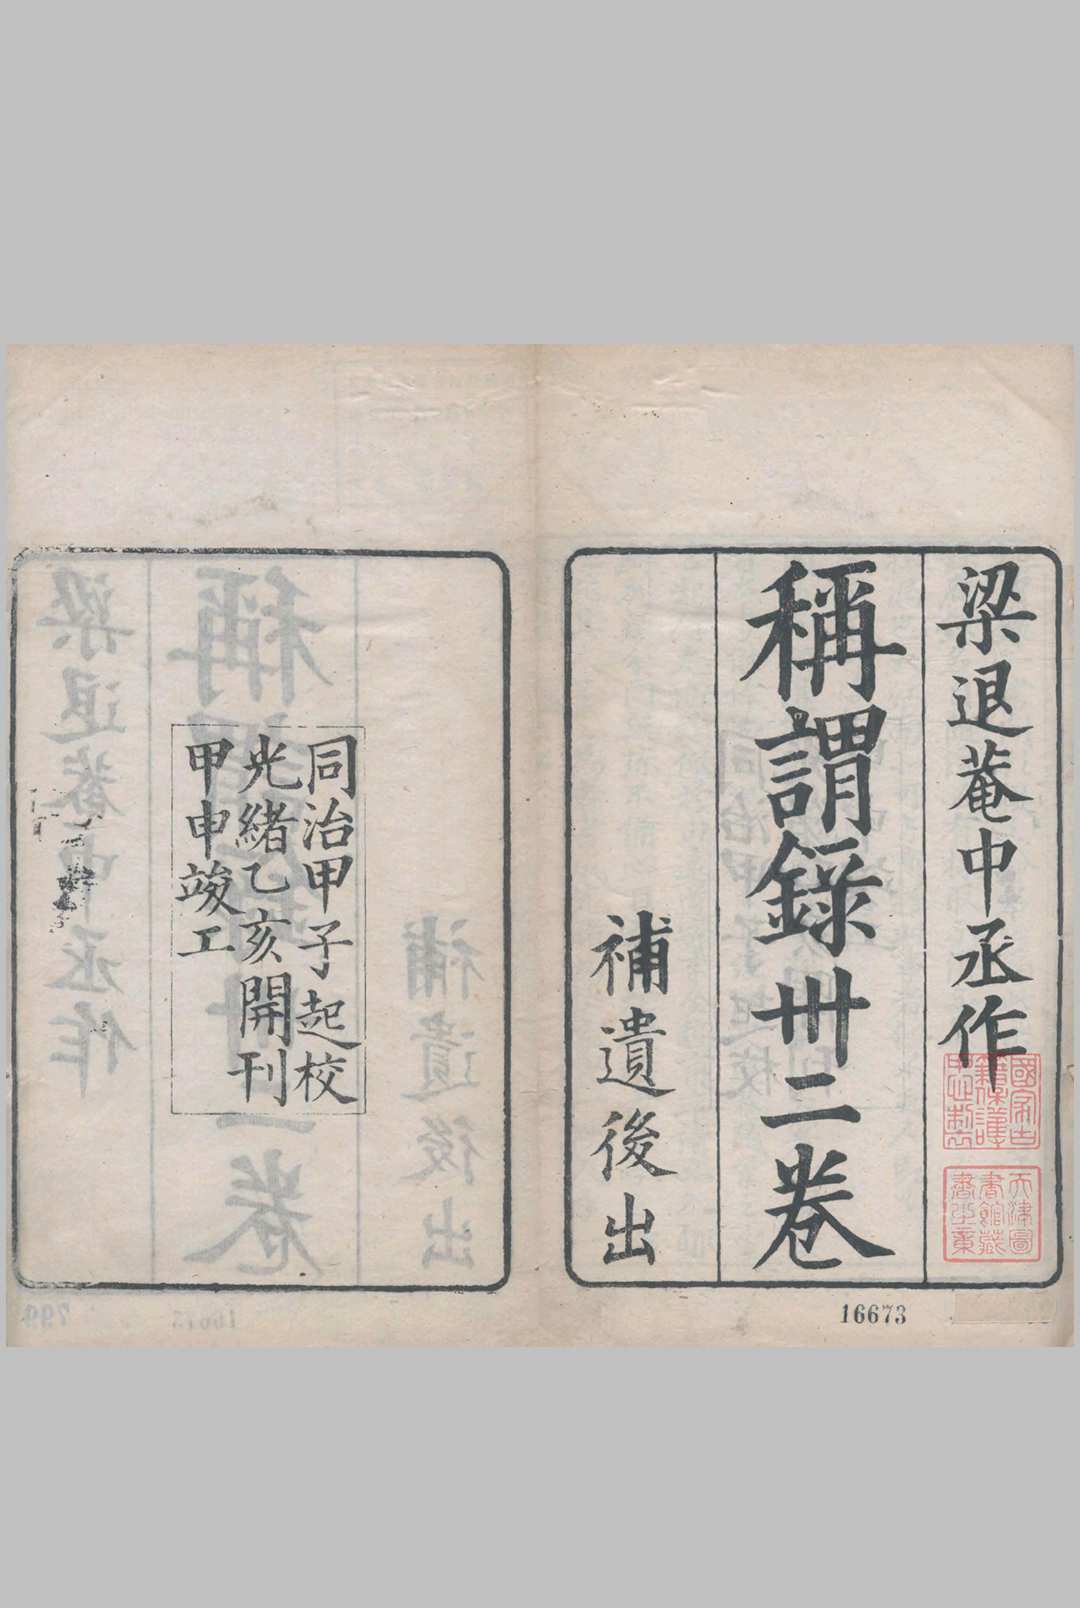 梁退菴中丞作
稱謂錄卅二卷
補遺後出
國家古籍保護中心監製
天津圖書館藏書之章
16673
同治甲子起校
光緒乙亥開刊
甲申竣工